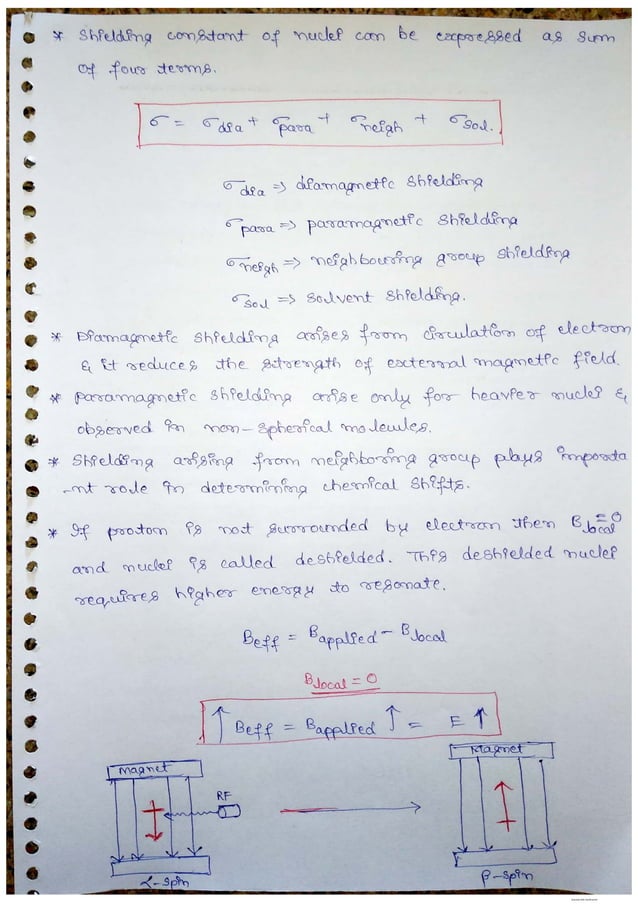 * Shielding constant of nuclei can be expressed as sum
of four terms.
σ = σdia + σpara + σneigh + σsol.
σdia => diamagnetic shielding
σpara => paramagnetic shielding
σneigh => neighbouring group shielding
σsol => solvent shielding.
* Diamagnetic shielding arises from circulation of electron
& it reduces the strength of external magnetic field.
* paramagnetic shielding arise only for heavier nuclei &
observed in non-spherical molecules.
* Shielding arising from neighboring group plays importa
-nt role in determining chemical shifts.
* If proton is not surrounded by electron then Blocal = 0
and nuclei is called deshielded. This deshielded nuclei
requires higher energy to resonate.
Beff = Bapplied - Blocal
Blocal = 0
↑ Beff = Bapplied ↑ = E ↑
Magnet
Magnet
RF
α-spin
β-spin